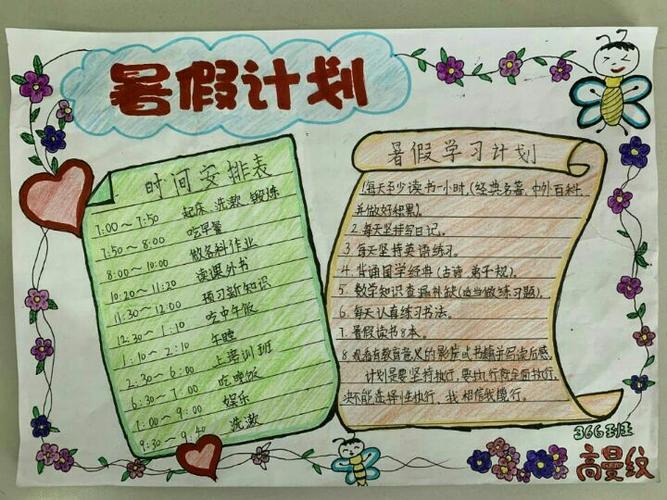 暑假计划
时间安排表
7:00~7:50 起床 洗漱 锻炼
7:50~8:00 吃早餐
8:00~10:00 做各科作业
10:20~11:20 读课外书
11:30~12:00 预习新知识
12:30~1:10 吃中午饭
1:10~2:10 午睡
2:30~6:00 上培训班
6:30~7:00 吃晚饭
7:00~9:00 娱乐
9:30~9:40 洗漱
暑假学习计划
1.每天至少读书一小时,(经典名著、中外百科),
并做好积累。
2.每天坚持写日记。
3.每天坚持英语练习。
4.背诵国学经典(古诗 弟子规)。
5.数学知识查漏补缺(适当做练习题)。
6.每天认真练习书法。
7.暑假读书8本。
8.观看有教育意义的影片或书籍并写读后感。
计划是要坚持执行,要执行就全面执行,
决不能选择性执行,我相信我能行。
366班
高曼纹